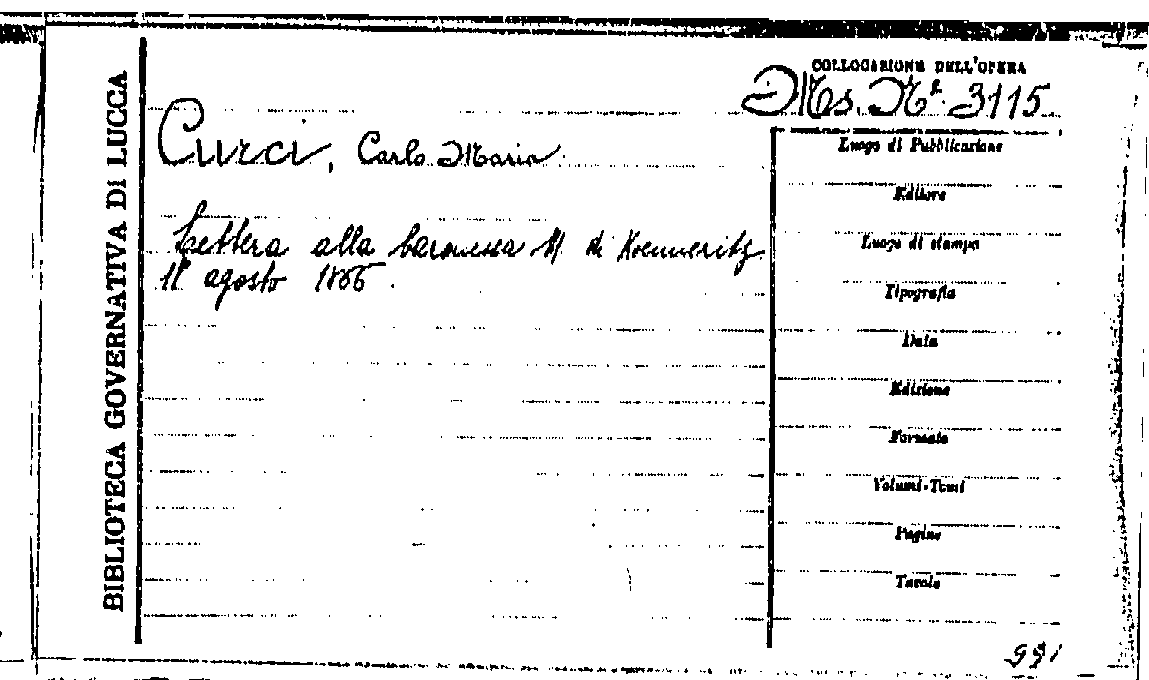 BIBLIOTECA GOVERNATIVA DI LUCCA
COLLOCAZIONE DELL'OPERA
Ms. N°. 3115
Curci, Carlo Maria
Lettera alla baronessa M. di Koenneritz
11 agosto 1866.
Luogo di Pubblicazione
Editore
Luogo di stampa
Tipografia
Data
Edizione
Formato
Volumi-Tomi
Pagine
Tavole
991